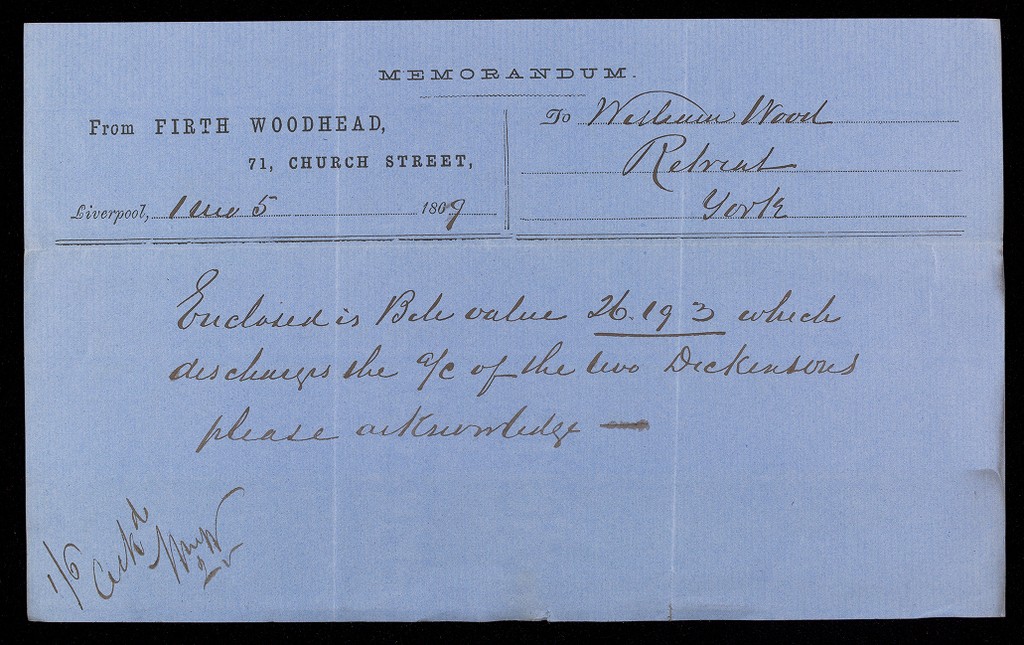 MEMORANDUM.
From FIRTH WOODHEAD,
71, CHURCH STREET,
Liverpool, 1 mo 5 1869
To William Wood
Retreat
York
Enclosed is Bde value 26.19 3 which
discharges the a/c of the two Dickensons
please acknowledge —
1/6
Ackd
WmW